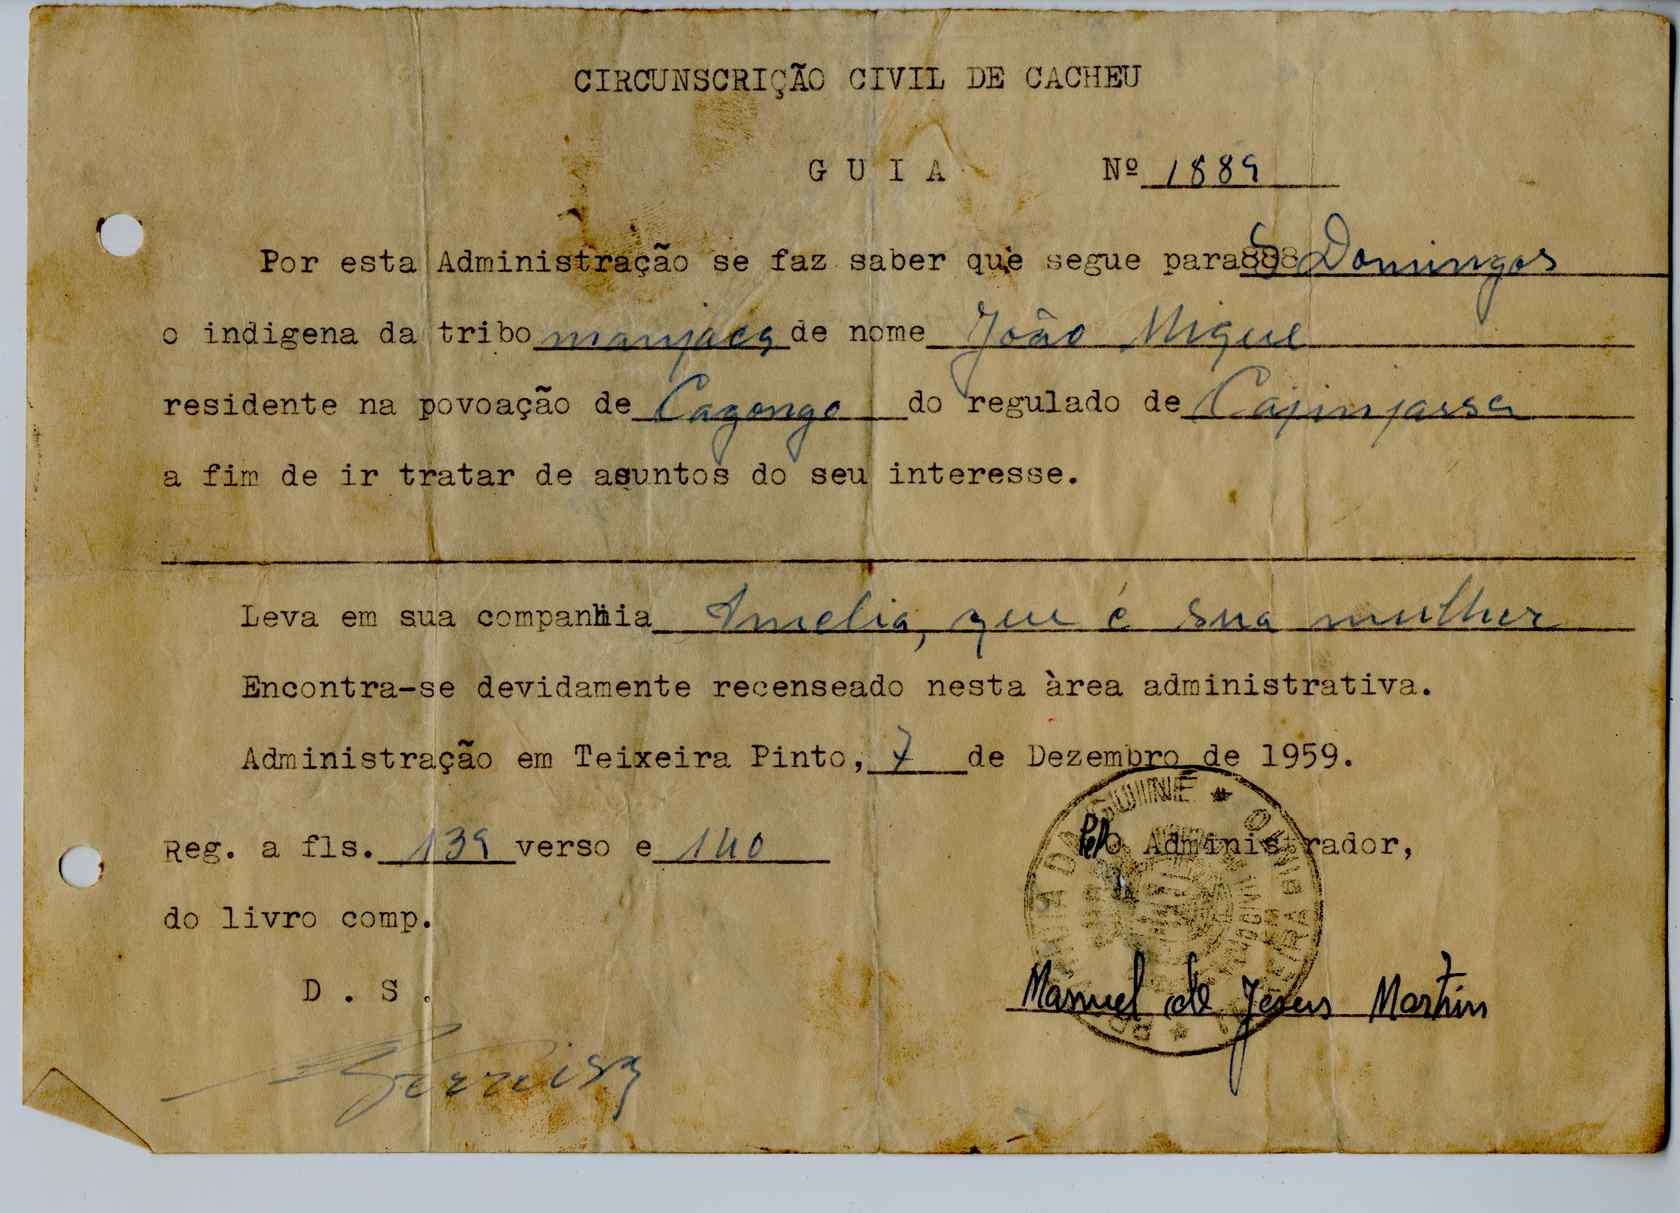 CIRCUNSCRIÇÃO CIVIL DE CACHEU
GUIA Nº 1889
Por esta Administração se faz saber que segue para S Domingos
o indigena da tribo manjaca de nome João Migue
residente na povoação de Cagongo do regulado de Cajinjassa
a fim de ir tratar de asuntos do seu interesse.
Leva em sua companhia Amelia, que é sua mulher
Encontra-se devidamente recenseado nesta àrea administrativa.
Administração em Teixeira Pinto, 7 de Dezembro de 1959.
Reg. a fls. 139 verso e 140
Pel O Administrador,
do livro comp.
D.S.
Manuel de Jesus Martins
Ferreira
GUINÉ